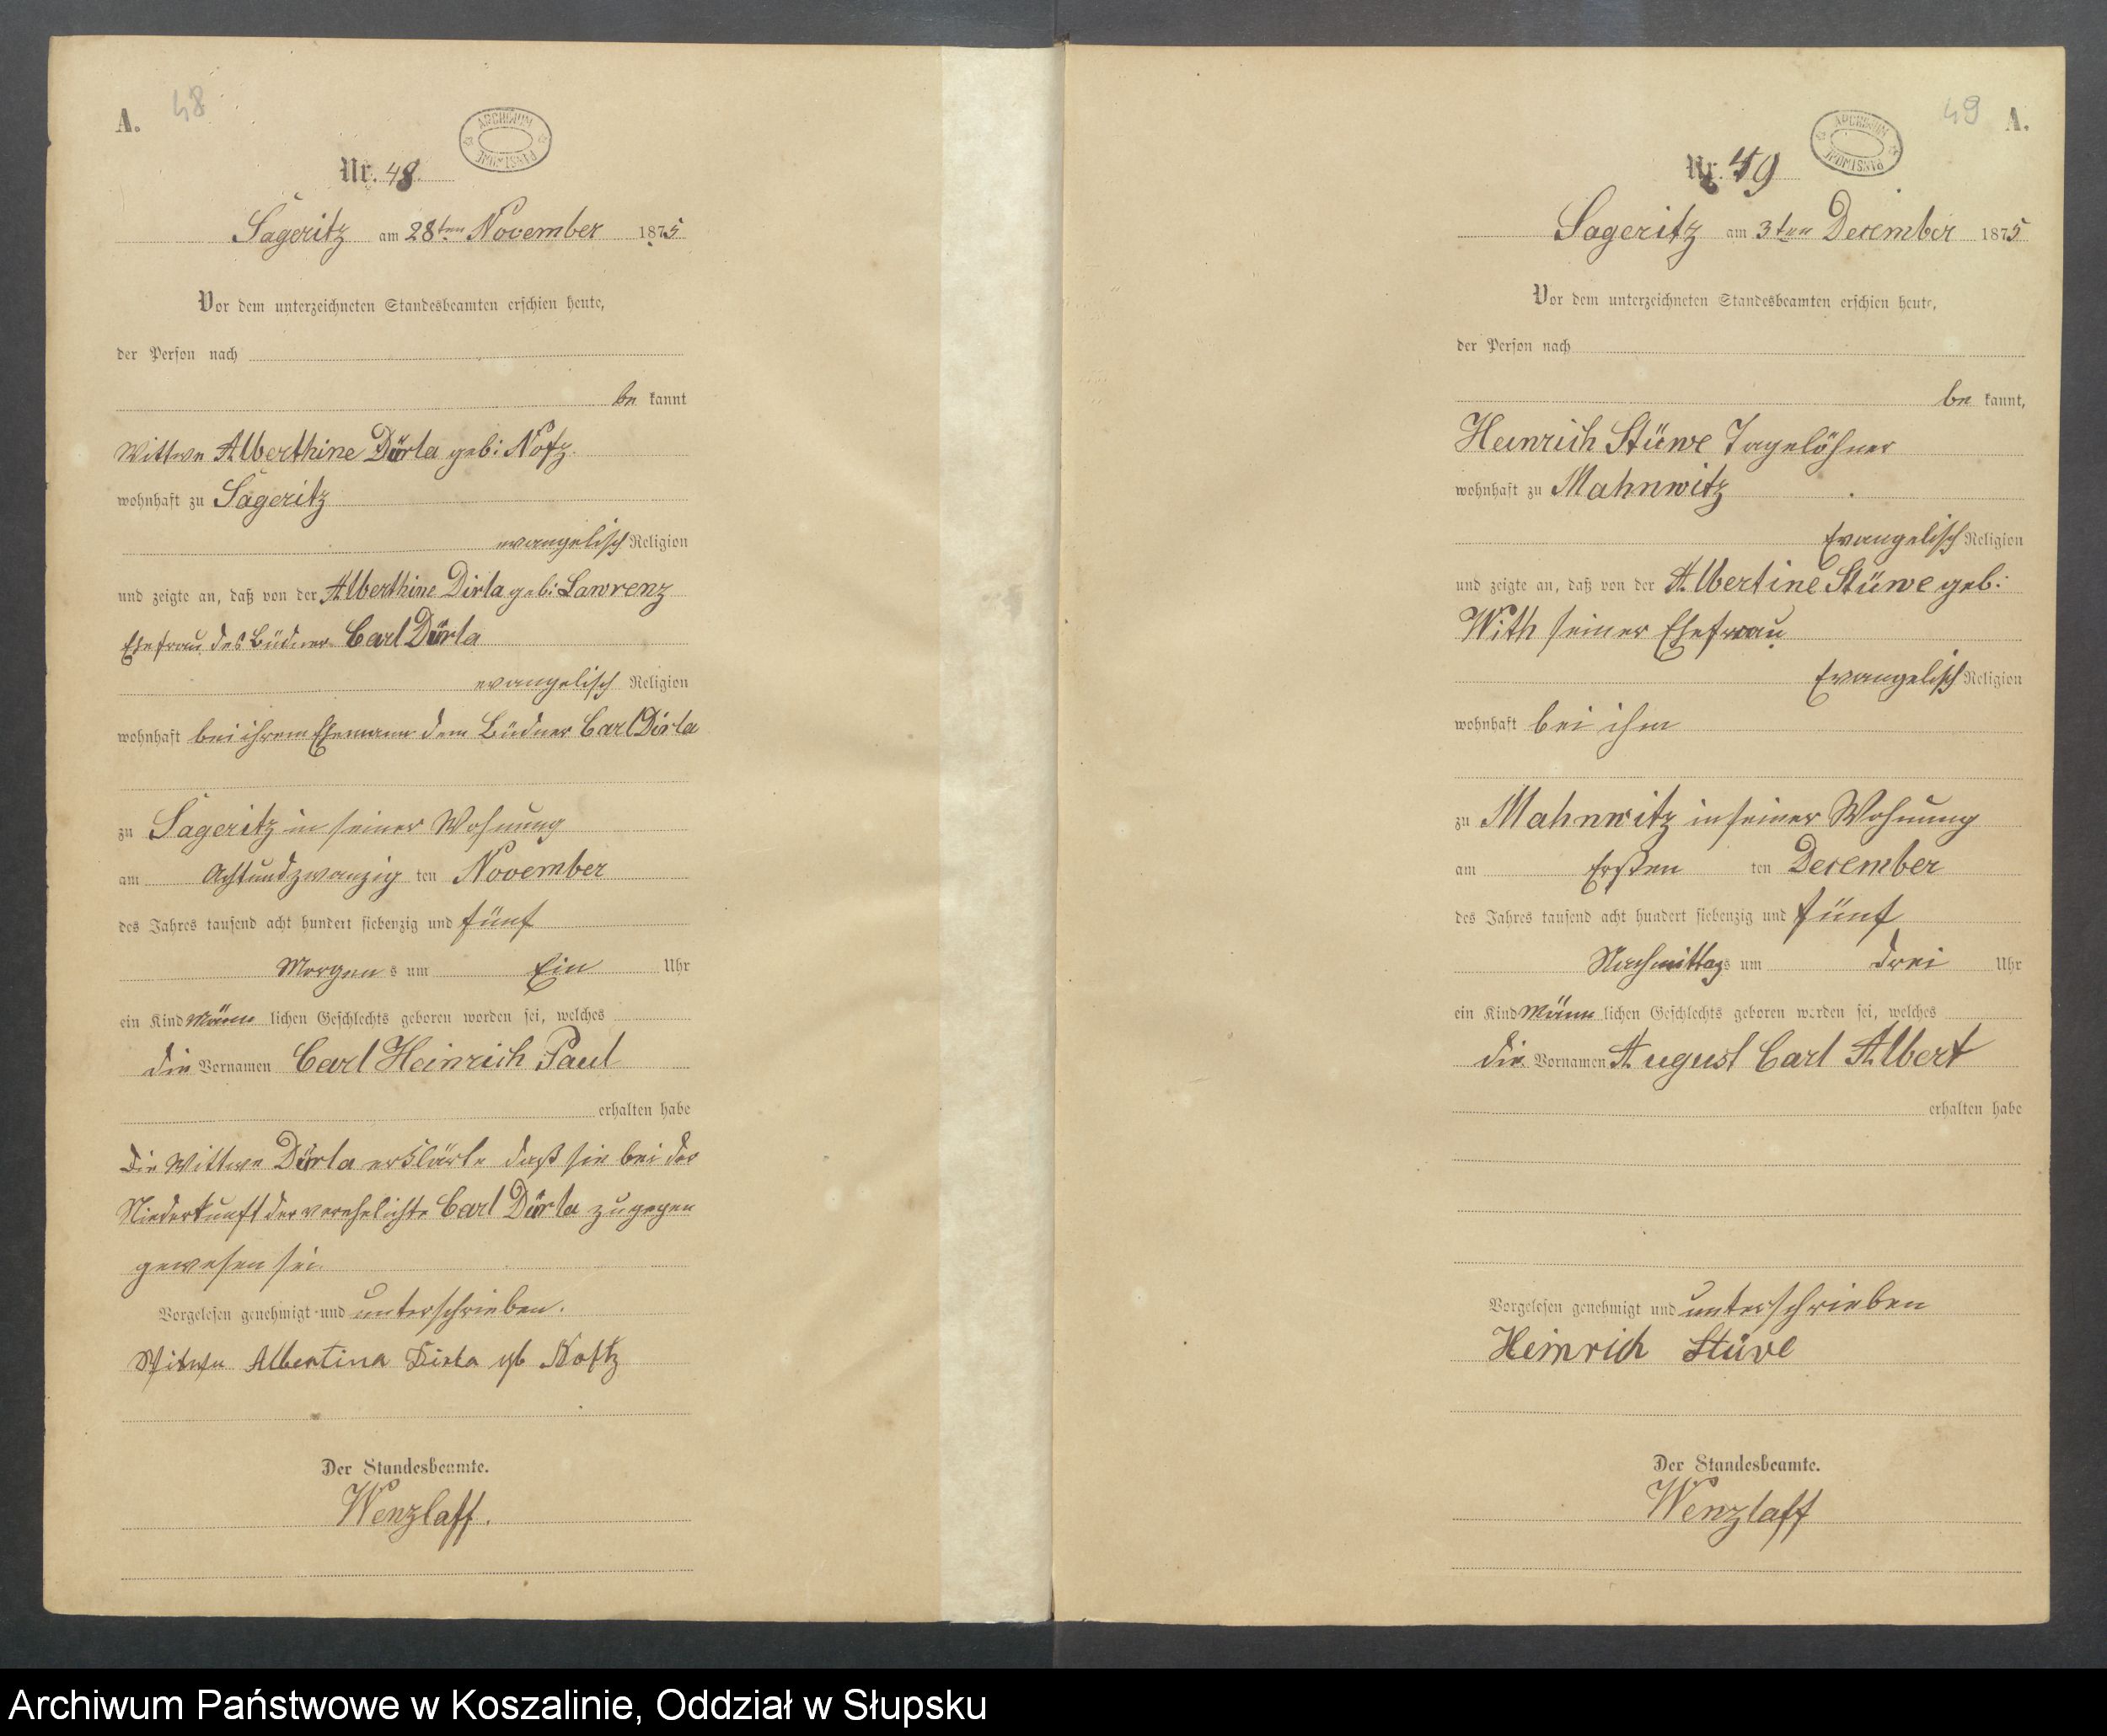 A. 48
ARCHIWUM PAŃSTWOWE
Nr. 48.
Sageritz am 28ten November 1875
Vor dem unterzeichneten Standesbeamten erschien heute,
der Person nach
be kannt
Wittwe Alberthine Dirla geb: Notz.
wohnhaft zu Sageritz
evangelisch Religion
und zeigte an, daß von der Alberthine Dirla geb: Lawrenz
Ehefrau des Büdner Carl Dirla
evangelisch Religion
wohnhaft bei ihrem Ehemann dem Büdner Carl Dirla
zu Sageritz in seiner Wohnung
am Achtundzwanzig ten November
des Jahres tausend acht hundert siebenzig und fünf
Morgen s um Ein Uhr
ein Kind Männ lichen Geschlechts geboren worden sei, welches
die Vornamen Carl Heinrich Paul
erhalten habe
Die Wittwe Dirla erklärte daß sie bei der
Niederkunft der verehelichte Carl Dirla zugegen
gewesen sei.
Vorgelesen genehmigt und unterschrieben.
Witwe Albertina Dirla gb Nottz
Der Standesbeamte.
Wenzlaff.
49 A.
ARCHIWUM PAŃSTWOWE
Nr. 49
Sageritz am 3ten December 1875
Vor dem unterzeichneten Standesbeamten erschien heute,
der Person nach
be kannt,
Heinrich Stüwe Tagelöhner
wohnhaft zu Mahnwitz
Evangelisch Religion
und zeigte an, daß von der Albertine Stüwe geb:
With seiner Ehefrau
Evangelisch Religion
wohnhaft bei ihm
zu Mahnwitz in seiner Wohnung
am Ersten ten December
des Jahres tausend acht hundert siebenzig und fünf
Nachmittag s um drei Uhr
ein Kind Männ lichen Geschlechts geboren worden sei, welches
die Vornamen August Carl Albert
erhalten habe
Vorgelesen genehmigt und unterschrieben
Heinrich Stüve
Der Standesbeamte.
Wenzlaff
Archiwum Państwowe w Koszalinie, Oddział w Słupsku